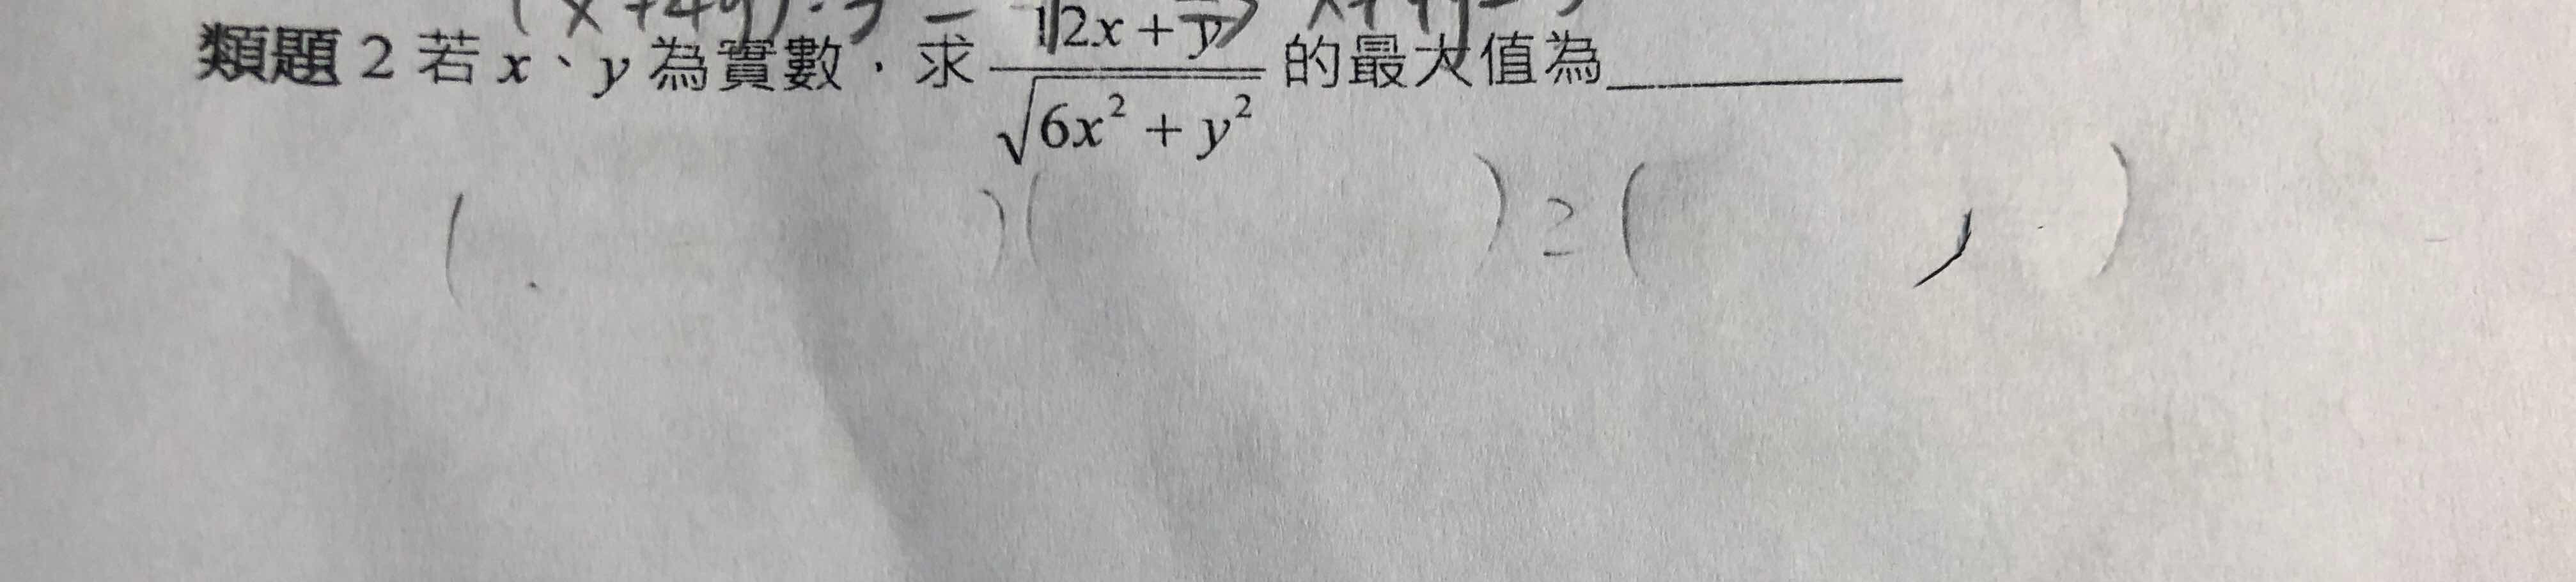 (x+4y)
類題 2 若 x、y 為實數，求 \frac{12x+y}{\sqrt{6x^2+y^2}} 的最大值為________
(    )(    ) ≥ (    ,    )